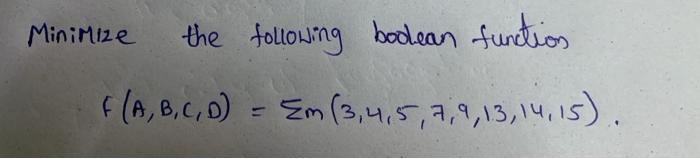 Minimize the following boolean function
f(A,B,C,D) = Σm(3,4,5,7,9,13,14,15).